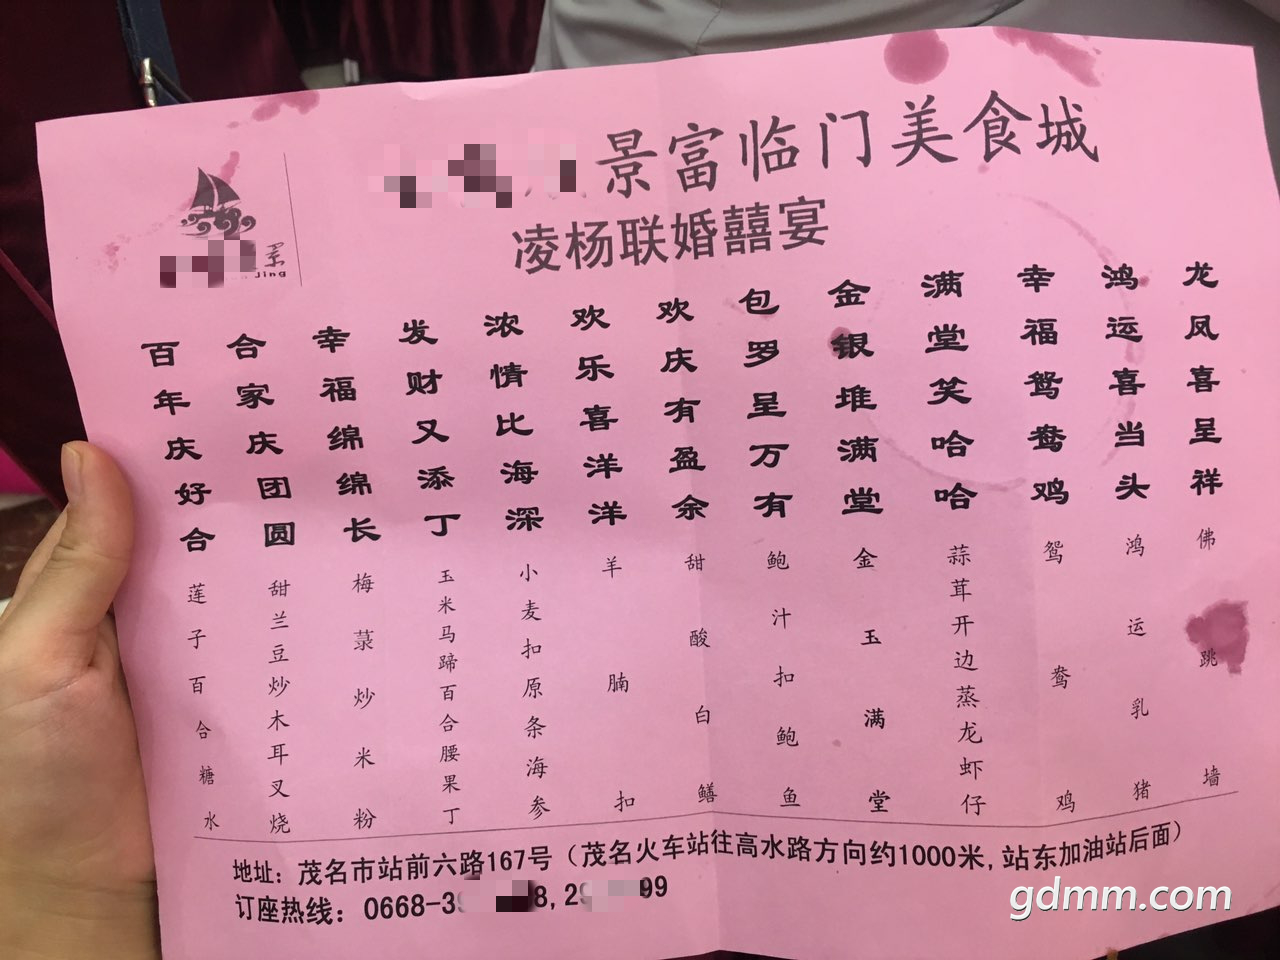 景富临门美食城
景
Jing
凌杨联婚囍宴
龙凤喜呈祥
佛跳墙
鸿运喜当头
鸿运乳猪
幸福鸳鸯鸡
鸳鸯鸡
满堂笑哈哈
蒜茸开边蒸龙虾仔
金银堆满堂
金玉满堂
包罗呈万有
鲍汁扣鲍鱼
欢庆有盈余
甜酸白鳝
欢乐喜洋洋
羊腩扣
浓情比海深
小麦扣原条海参
发财又添丁
玉米马蹄百合腰果丁
幸福绵绵长
梅菉炒米粉
合家庆团圆
甜兰豆炒木耳叉烧
百年庆好合
莲子百合糖水
地址：茂名市站前六路167号（茂名火车站往高水路方向约1000米,站东加油站后面）
订座热线：0668-39 8,29 99
gdmm.com